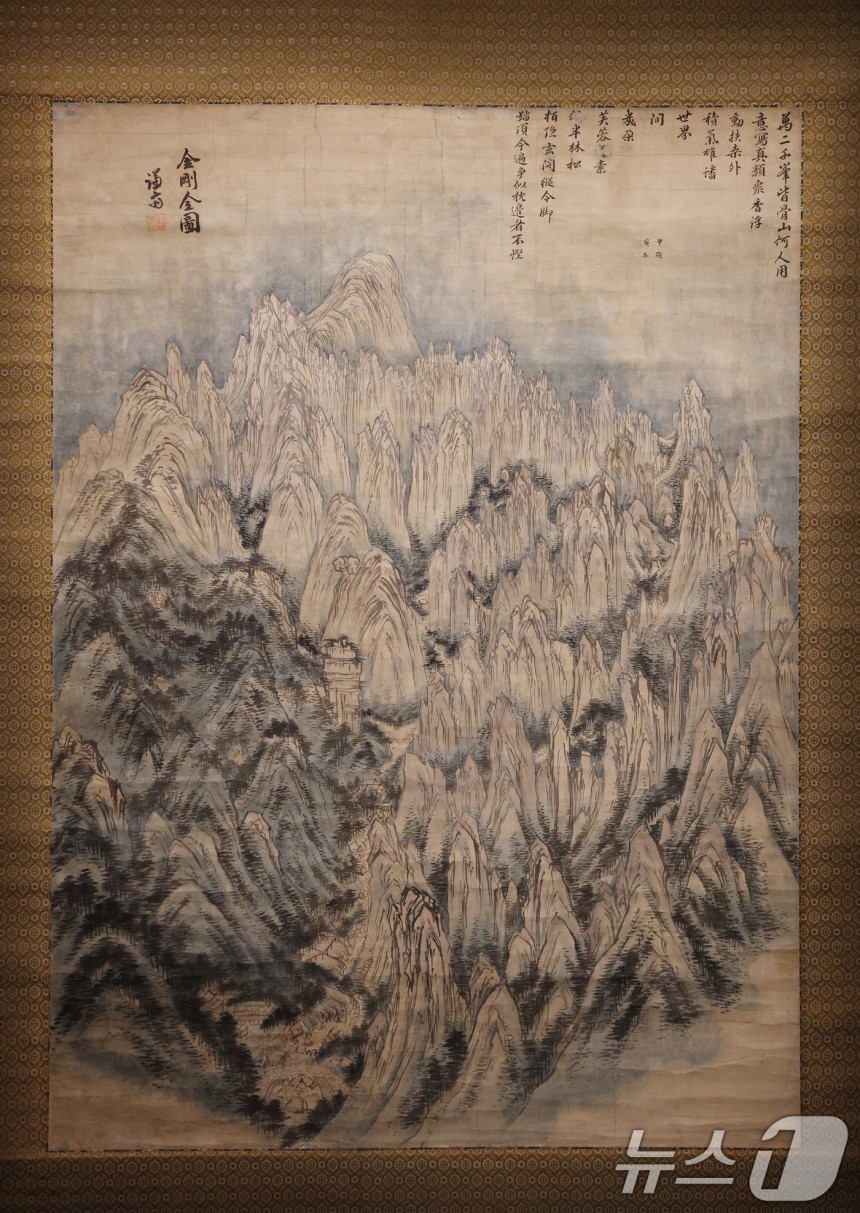 萬二千峯皆骨山何人用
意寫真顏衆香浮
動扶桑外
積氣雄蟠
世界
間
幾朶
芙蓉素
半林松
栢隱玄関縱令脚
踏須今遍爭似枕邊看不慳
甲題
寅冬
金剛全圖
謙齋
뉴스1